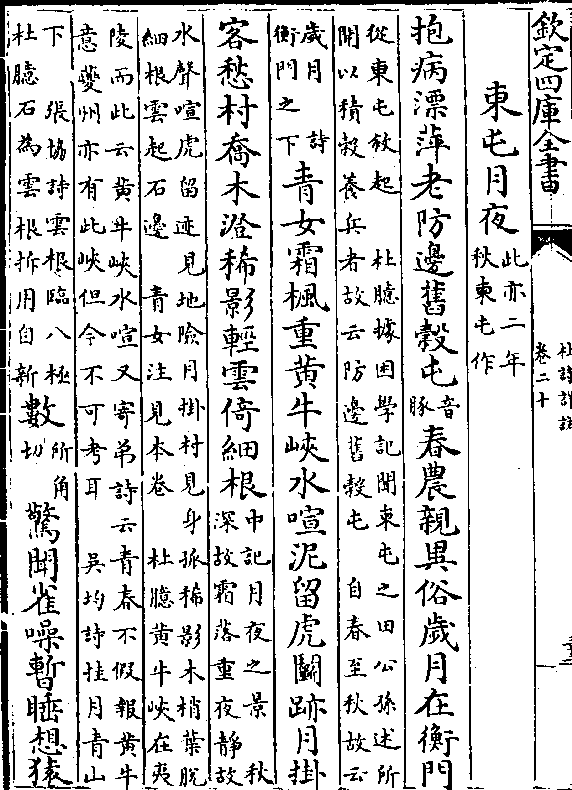 欽定四庫全書
杜詩詳註
卷二十
東屯月夜此亦二年秋東屯作
抱病漂萍老防邊舊穀屯音豚春農親異俗歲月在衡門
從東屯敘起 杜臆據困學記聞東屯之田公孫述所
開以積穀養兵者故云防邊舊穀屯 自春至秋故云
歲月 詩衡門之下青女霜楓重黃牛峽水喧泥留虎鬬跡月掛
客愁村喬木澄稀影輕雲倚細根中記月夜之景 秋深故霜落重夜靜故
水聲喧虎留迹見地險月掛村見身孤稀影木梢葉脫
細根雲起石邊 青女注見本卷 杜臆黃牛峽在夷
陵而此云黃牛峽水喧又寄弟詩云青春不假報黃牛
意夔州亦有此峽但今不可考耳 吳均詩挂月青山
下 張協詩雲根臨八極杜臆石為雲根拆用自新數所角切驚聞雀噪暫睡想猿